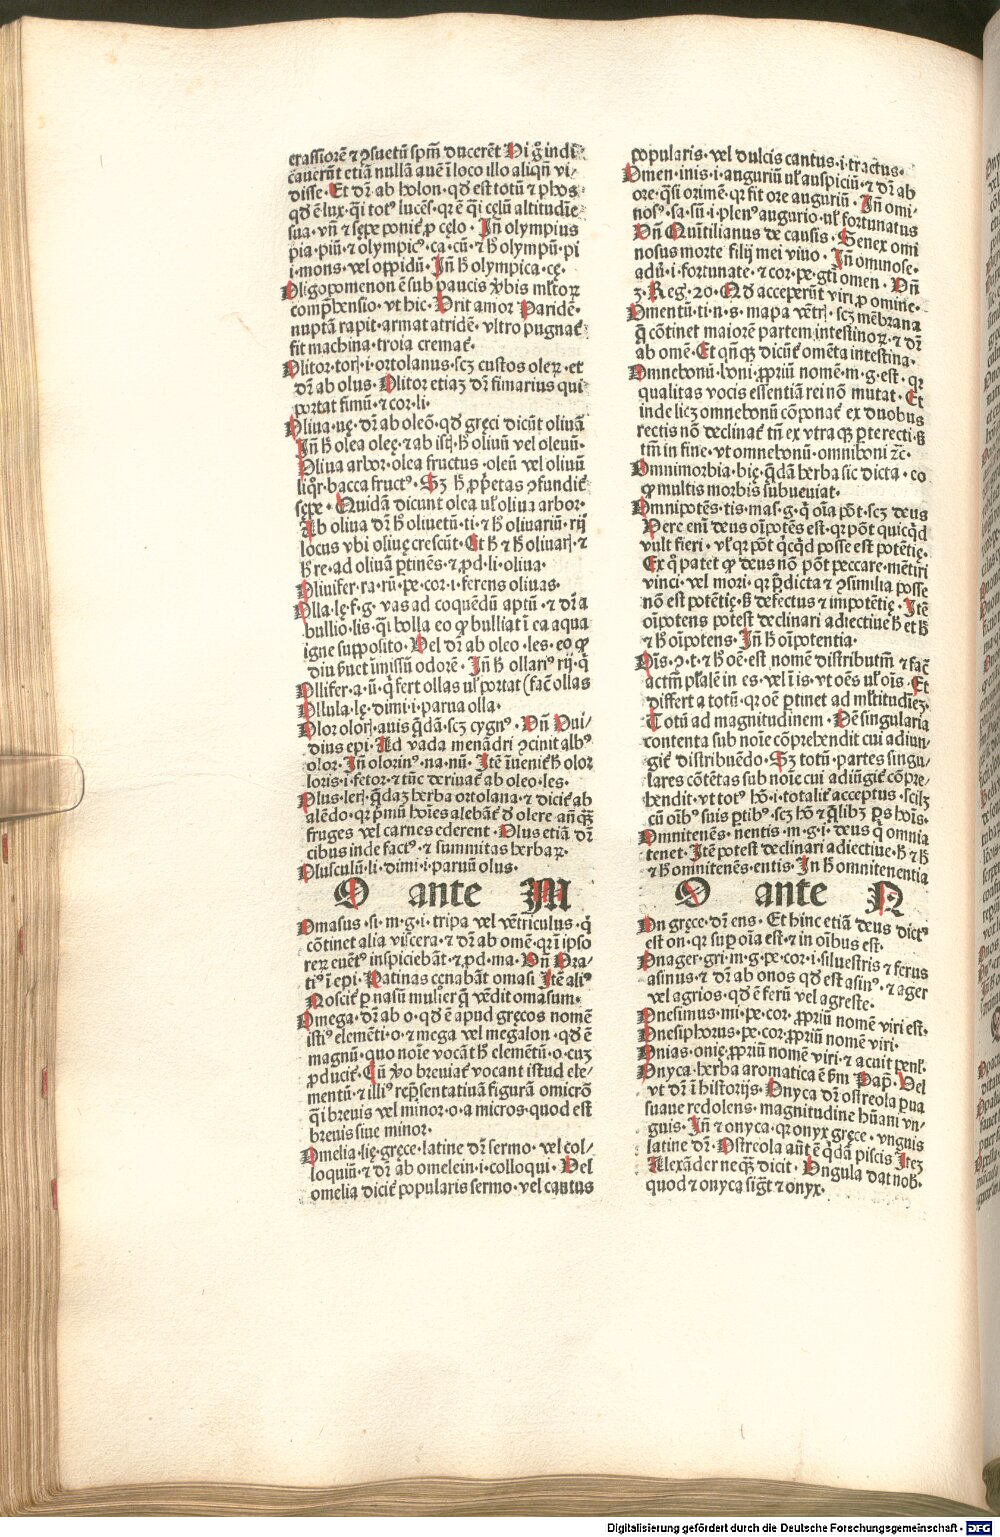 crassiorē ⁊ ↄsuetū spm̄ ducerēt Hi gͦ indi
cauerūt etiā nullā auē ī loco illo aliqn̄ vi-
disse· Et dr̄ ab holon· qd̓ est totū ⁊ phos
qd̓ ē lux· q̄i totꝰ lucēs· qr̄ ē q̄i cęlū altitudīe
sua· vn̄ ⁊ sępe ponit᷑ ꝓ cęlo· In̄ olympius
pia· piū· ⁊ olympicꝰ· ca· cū· ⁊ h̓ olympū· pi
i· mons· vel oppidū· In̄ h̓ olympica· cę·
Oligopomenon ē sub paucis v̓bis ml̓toꝝ
comp̄hensio· vt hic· Vrit amor Paridē·
nuptā rapit· armat atridē· vltro pugnat᷑
fit machina· troia cremat᷑·
Olitor· torꝭ· i· ortolanus· scꝫ custos oleꝝ· et
dr̄ ab olus· Olitor etiaꝫ dr̄ fimarius qui
portat fimū· ⁊ cor· li·
Oliua· uę· dr̄ ab oleō· qd̓ gręci dicūt oliuā
In̄ h̓ olea oleę· ⁊ ab isꝭ· h̓ oliuū vel oleuū·
Oliua arbor· olea fructus· oleū vel oliuū
liqͦr· bacca fructꝰ· Sꝫ h̓ ꝓp̄etas ↄfundit᷑
sępe· Quidā dicunt olea ul̓ oliua arbor·
Ab oliua dr̄ h̓ oliuetū· ti· ⁊ h̓ oliuariū· rij
locus vbi oliuę crescūt· Et h̓ ⁊ h̓ oliuarꝭ· ⁊
h̓ re· ad oliuā ꝑtinēs· ⁊ ꝓd· li· oliua·
Oliuifer· ra· rū· pe· cor· i· ferens oliuas·
Olla· lę· f· g· vas ad coquēdū aptū· ⁊ dr̄ a
bullio· lis· q̄i bolla eo ꝙ bulliat ī ea aqua
igne supposito· Vel dr̄ ab oleo· les· eo ꝙ
diu ẜuet īmissū odorē· In̄ h̓ ollariꝰ rij· q̄
Ollifer· a· ū· q̄ fert ollas ul̓ portat (fac̄ ollas
Ollula· lę· dimi· i· parua olla·
Olor olorꝭ· auis q̄dā· scꝫ cygnꝰ· Vn̄ Oui-
dius epi· Ad vada menādri ↄcinit albꝰ
olor· In̄ olorinꝰ· na· nū· Itē īuenit᷑ h̓ olor
loris· i· fetor· ⁊ tūc deriuat᷑ ab oleo· les·
Olus· lerꝭ· q̄daꝫ herba ortolana· ⁊ dicit᷑ ab
alēdo· qr̄ pͥmū hoīes alebāt᷑ d̓ olere an̄qꝫ
fruges vel carnes ederent· Olus etiā dr̄
cibus inde factꝰ· ⁊ summitas herbaꝝ·
Olusculū· li· dimi· i· paruū olus·
O ante M
Omasus· si· m· g· i· tripa vel vētriculus· q̄
cōtinet alia viscera· ⁊ dr̄ ab omē· qr̄ ī ipso
reꝝ euētꝰ inspiciebāt· ⁊ ꝓd· ma· Vn̄ Ora-
tiꝰ ī epi· Patinas cęnabāt omasi Itē aliꝰ
Noscit᷑ ꝑ nasū mulier q̄ vēdit omasum·
Omega· dr̄ ab o· qd̓ ē apud gręcos nomē
istiꝰ elemēti· o· ⁊ mega vel megalon· qd̓ ē
magnū· quo noīe vocāt h̓ elemētū· o· cuꝫ
ꝓducit᷑· Cū v̓o breuiat᷑ vocant istud ele-
mentū· ⁊ illiꝰ rep̄sentatiuā figurā omicrō
q̄i breuis vel minor· o· a micros· quod est
breuis siue minor·
Omelia· lię· gręce· latine dr̄ sermo· vel col-
loquiū· ⁊ dr̄ ab omelein· i· colloqui· Vel
omelia dicit᷑ popularis sermo· vel cantus
popularis· vel dulcis cantus· i· tractus·
Omen· inis· i· auguriū ul̓ auspiciū· ⁊ dr̄ ab
ore· q̄si orimē· qr̄ fit ore auguriū· In̄ omi-
nosꝰ· sa· sū· i· plenꝰ augurio· ul̓ fortunatus
Vn̄ Quītilianus de causis· Senex omi
nosus morte filij mei viuo· In̄ ominose·
adū· i· fortunate· ⁊ cor· pe· gtī omen· Vn̄
3· Reg· 20· Qd̓ acceperūt viri ꝓ omine·
Omentū· ti· n· s· mapa vētrꝭ· scꝫ mēbrana
q̄ cōtinet maiorē partem intestinoꝝ· ⁊ dr̄
ab omē· Et qn̄qꝫ dicūt᷑ omēta intestina·
Omnebonū· boni· ꝓpriū nomē· m· g· est· qr̄
qualitas vocis essentiā rei nō mutat· Et
inde licꝫ omnebonū cōponat᷑ ex duobus
rectis nō declinat᷑ tn̄ ex vtraqꝫ ꝑte recti· ẜ
tm̄ in fine· vt omnebonū· omniboni ⁊c̄·
Omnimorbia· bię· q̄dā herba sic dicta· eo
ꝙ multis morbis subueniat·
Omnipotēs· tis· mas· g· q̄ oīa pōt· scꝫ deus
Vere enī deus oīpotēs est· qr̄ pōt quicq̄d
vult fieri· ul̓ qr̄ pōt q̄cq̄d posse est potētię·
Ex q̄ patet ꝙ deus nō pōt peccare· mētiri
vinci· vel mori· qr̄ p̄dicta ⁊ ↄsimilia posse
nō est potētię· ẜ defectus ⁊ impotētię· Itē
oīpotens potest declinari adiectiue h̓ et h̓
⁊ h̓ oīpotens· In̄ h̓ oīpotentia·
Oīs· ↄ· t· ⁊ h̓ oē· est nomē distributm̄ ⁊ fac̄
actm̄ pl̓alē in es· vel īis· vt oēs ul̓ oīs· Et
differt a totū· qr̄ oē ꝑtinet ad ml̓titudīeꝫ·
Totū ad magnitudinem· Oē singularia
contenta sub noīe cōprehendit cui adiun-
git᷑ distribuēdo· Sꝫ totū· partes singu-
lares cōtētas sub noīe cui adiūgit᷑ cōpre-
hendit· vt totꝰ hō· i· totalit᷑ acceptus· scilꝫ
cū oībꝰ suis ꝑtibꝰ· sꝫ hō ⁊ q̄libꝫ ꝑs hoīs·
Omnitenēs· nentis· m· g· i· deus q̄ omnia
tenet· Itē potest declinari adiectiue· h̓ ⁊ h̓
⁊ h̓ omnitenēs· entis· In̄ h̓ omnitenentia
O ante N
On gręce· dr̄ ens· Et hinc etiā deus dictꝰ
est on· qr̄ sup oīa est· ⁊ in oībus est·
Onager· gri· m· g· pe· cor· i· siluestris ⁊ ferus
asinus· ⁊ dr̄ ab onos qd̓ est asinꝰ· ⁊ ager
vel agrios· qd̓ ē ferū vel agreste·
Onesimus· mi· pe· cor· ꝓpriū nomē viri est·
Onesiphorus· pe· cor· ꝓpriū nomē viri·
Onias· onię· ꝓpriū nomē viri· ⁊ acuit penl̓·
Onyca· herba aromatica ē ẜm Pap̄· Vel
vt dr̄ ī historijs· Onyca dr̄ ostreola ꝑua
suaue redolens· magnitudine hūani vn-
guis· In̄ ⁊ onyca· qr̄ onyx gręce· vnguis
latine dr̄· Ostreola aut̄ ē q̄dā piscis Iteꝫ
Alexāder neqꝫ dicit· Ungula dat nob̓·
quod ⁊ onyca sigt᷑ ⁊ onyx·
Digitalisierung gefördert durch die Deutsche Forschungsgemeinschaft - DFG